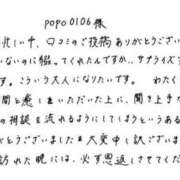 popo0106様
忙しい中、口コミのご投稿ありがとうござい
いないのに綴ってくれたんですか…サプライズで
す。こういう大人になりたいです。 わたく
間と癒しをいただいた上に、聞き上手か
の相談を流れるようにしてしまうというあるま
がとうございました&大変申し訳ございま
訪れた暁には、必ず恩返しさせてくだ